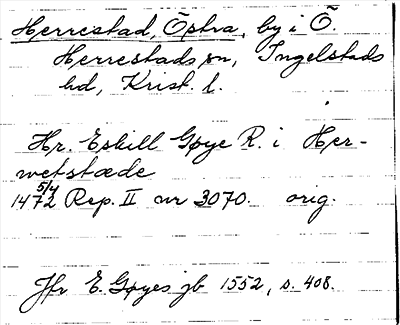 Herrestad, Östra, by i Ö.
Herrestads sn, Ingelstads
hd, Krist. l.
Hr. Eskill Gøye R. i Her-
wetstæde
5/4
1472 Rep. II nr 3070. orig.
Jfr E. Gøyes jb 1552, s. 408.